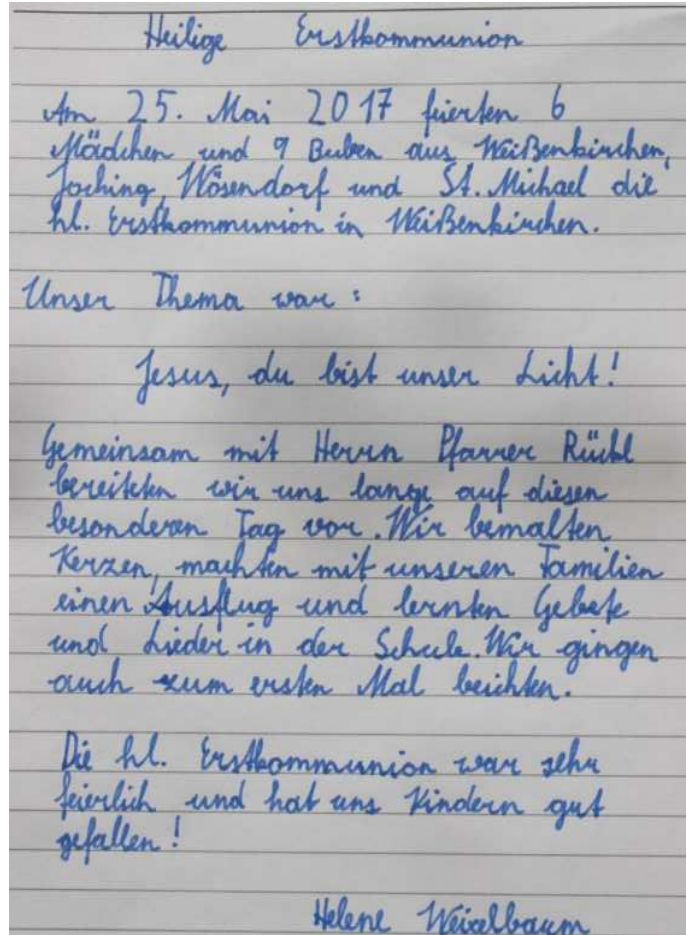 Heilige Erstkommunion
Am 25. Mai 2017 feierten 6
Mädchen und 9 Buben aus Weißenkirchen,
Joching, Wösendorf und St. Michael die
hl. Erstkommunion in Weißenkirchen.
Unser Thema war:
Jesus, du bist unser Licht!
Gemeinsam mit Herrn Pfarrer
bereiteten wir uns lange auf diesen
besonderen Tag vor. Wir bemalten
Kerzen, machten mit unseren Familien
einen Ausflug und lernten Gebete
und Lieder in der Schule. Wir gingen
auch zum ersten Mal beichten.
Die hl. Erstkommunion war sehr
feierlich und hat uns Kindern gut
gefallen!
Helene Weixelbaum